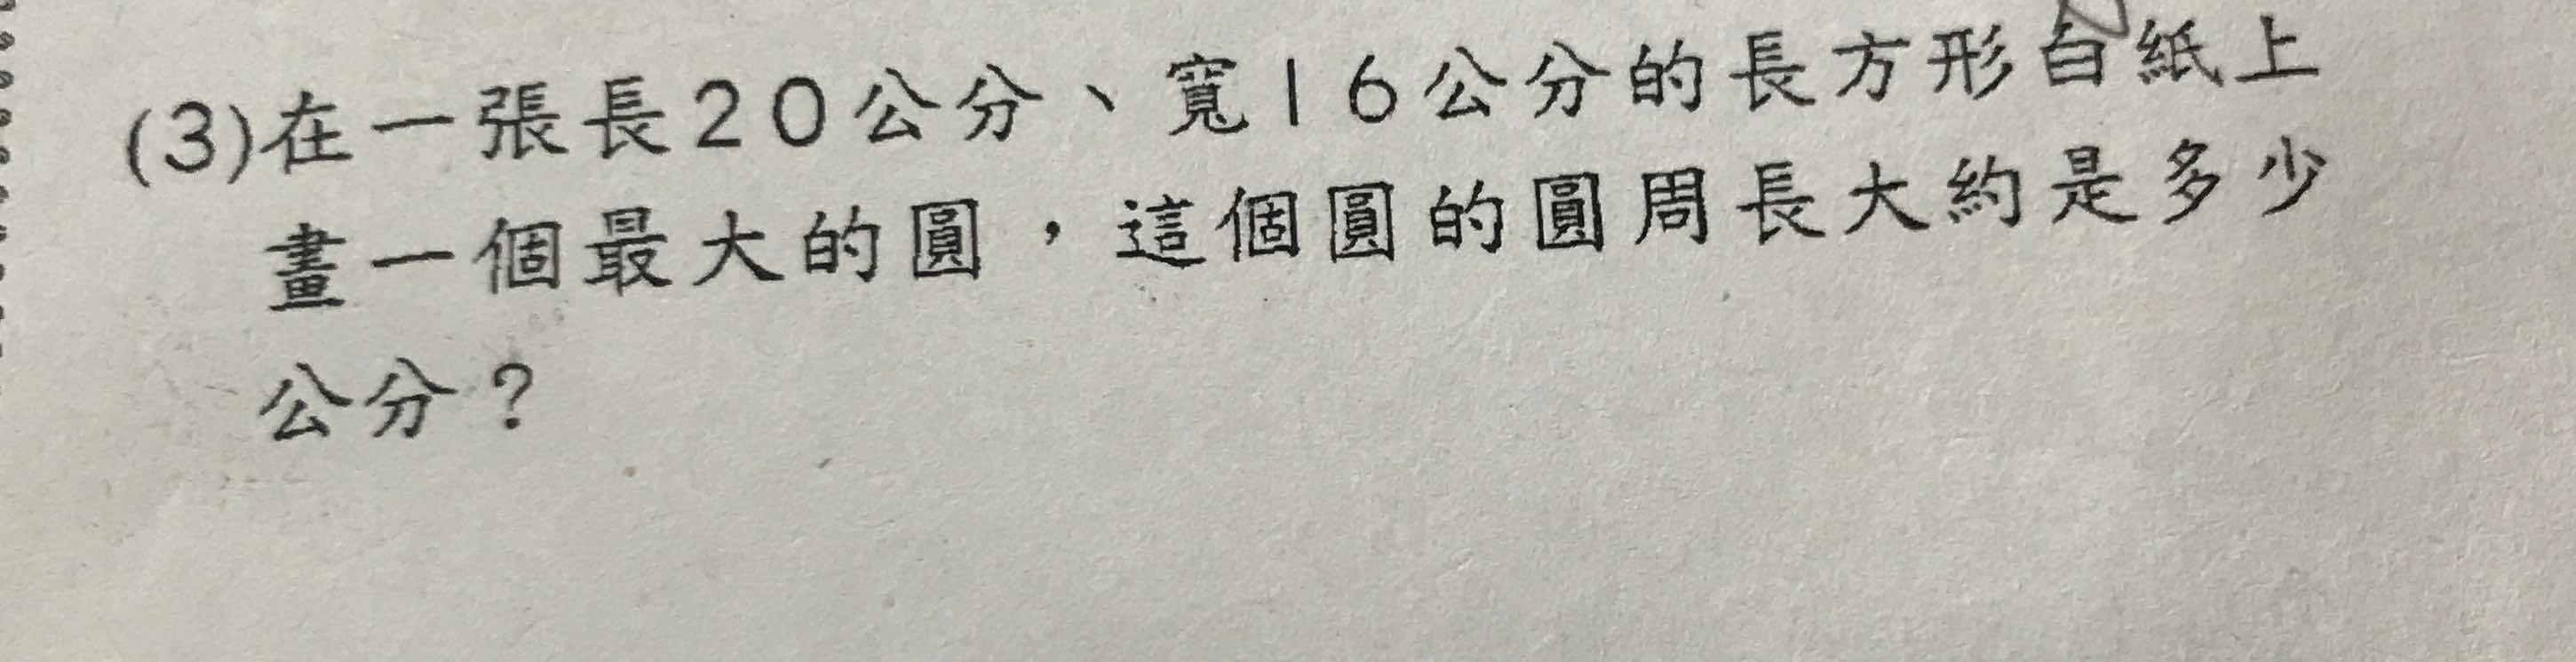 (3)在一張長20公分、寬16公分的長方形白紙上
畫一個最大的圓，這個圓的圓周長大約是多少
公分？